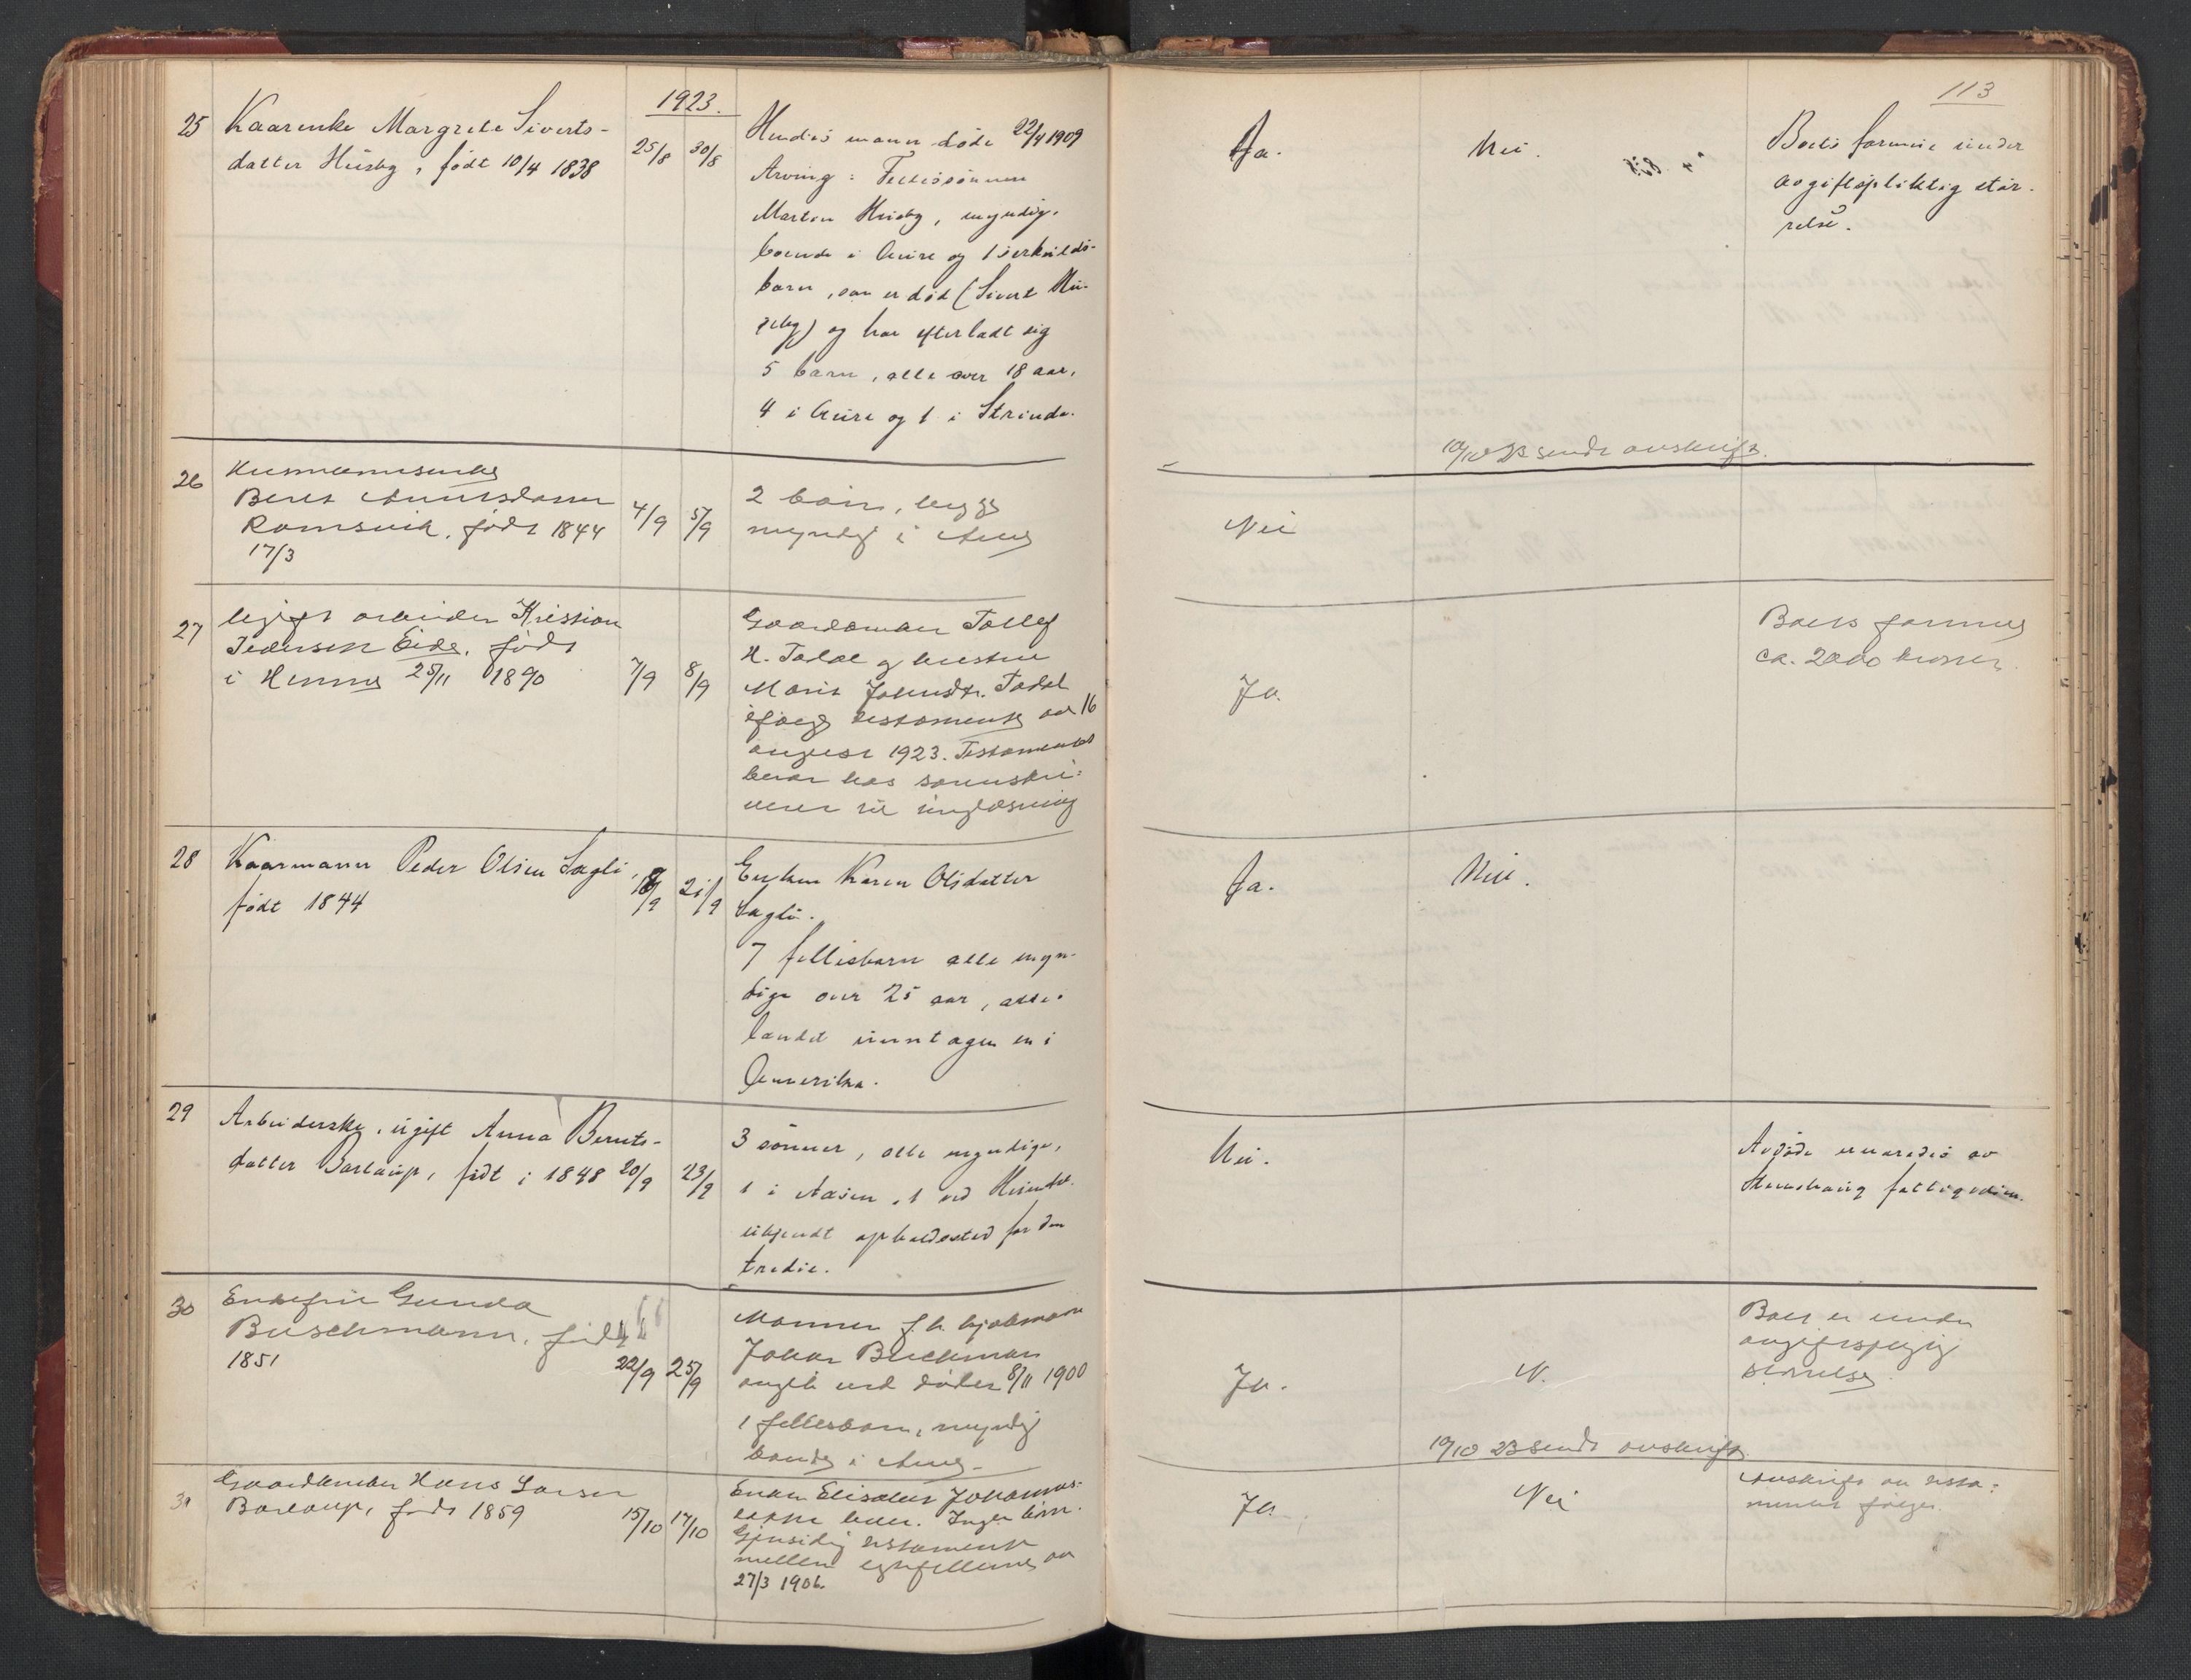 1923.
113
25 Kaarenke Margrete Siverts-
datter Husby, født 10/4 1838
25/8 30/8
Hendes mann døde 22/4 1909
Arving: Fellessønnen
Martin Husby, myndig,
boende i Aure og 1 særkulds-
barn, som er død (Sivert Hu-
sby) og har efterladt sig
5 barn, alle over 18 aar,
4 i Aure og 1 i Strinda.
Ja.
Nei.
Boets formue under
avgiftspliktig stør-
relse.
10/10 23 sendt avskrift.
26
Beret
Romsvik, født 1844
17/3
4/9 5/9
2 barn, begge
myndig i Aure
Nei
27 Ugift arbeider Kristian
Pedersen Eide, født
i Hemne 25/11 1890
7/9 8/9
Gaardmann Tollef
H. Todal og hustru
Marit Johnsdtr. Todal
ifølge testamente av 16
august 1923. Testamentet
beror hos sorenskri-
veren til tinglæsning
Ja.
Boets formue
ca. 2000 kroner.
28 Kaarmann Peder Olsen Sagli,
født 1844
18/9 21/9
Enken Karen Olsdatter
Sagli.
7 fellesbarn alle myn-
dige over 25 aar, alle i
landet unntagen en i
Amerika.
Ja.
Nei.
29 Arbeiderske, ugift Anna Bernts-
datter Barlaup, født i 1848
20/9 23/9
3 sønner, alle myndige,
1 i Aasen, 1 ved
ukjendt opholdssted for den
tredie.
Nei.
Avdøde av
fattigvæsen.
30 Enkefru Gunda
Buschmann, født
1851
22/9 25/9
Mannen f.h.
Johan Buchman
ved døden 8/11 1900
1 fellesbarn, myndig
boende i Aure.
Ja.
N.
Boet er under
avgiftspligtig
størrelse
10/10 23 sendt avskrift.
31 Gaardmann Hans Larsen
Barlaup, født 1859
15/10 17/10
Enken Elisabet Johannes-
datter lever. Ingen barn.
Gjensidig testamente
mellem egtefellerne av
27/3 1906.
Ja.
Nei
Avskrift av testa-
mentet følger.